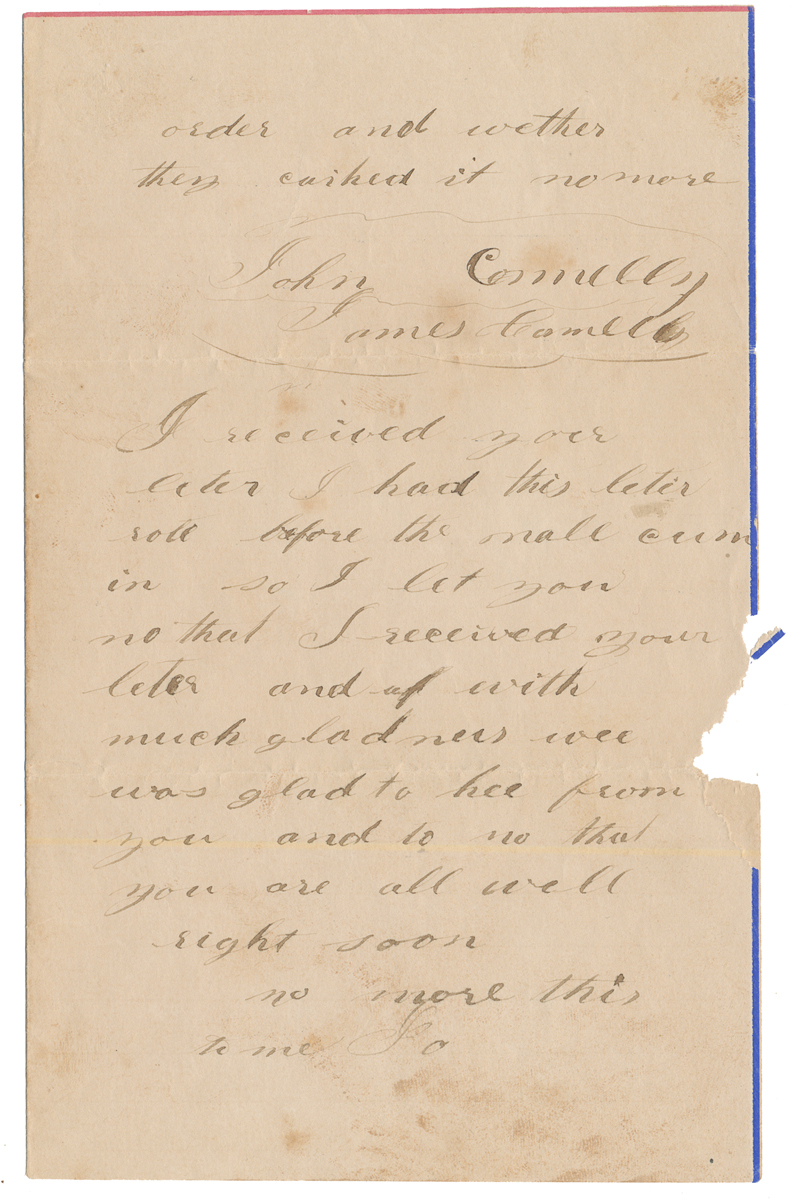 order and wether
they cashed it no more
John Connelly
James
I received your
leter I had this leter
rote before the mall cum
in so I let you
no that I received your
leter and with
much gladness wee
was glad to hee from
you and to no that
you are all well
right soon
no more this
time Jo